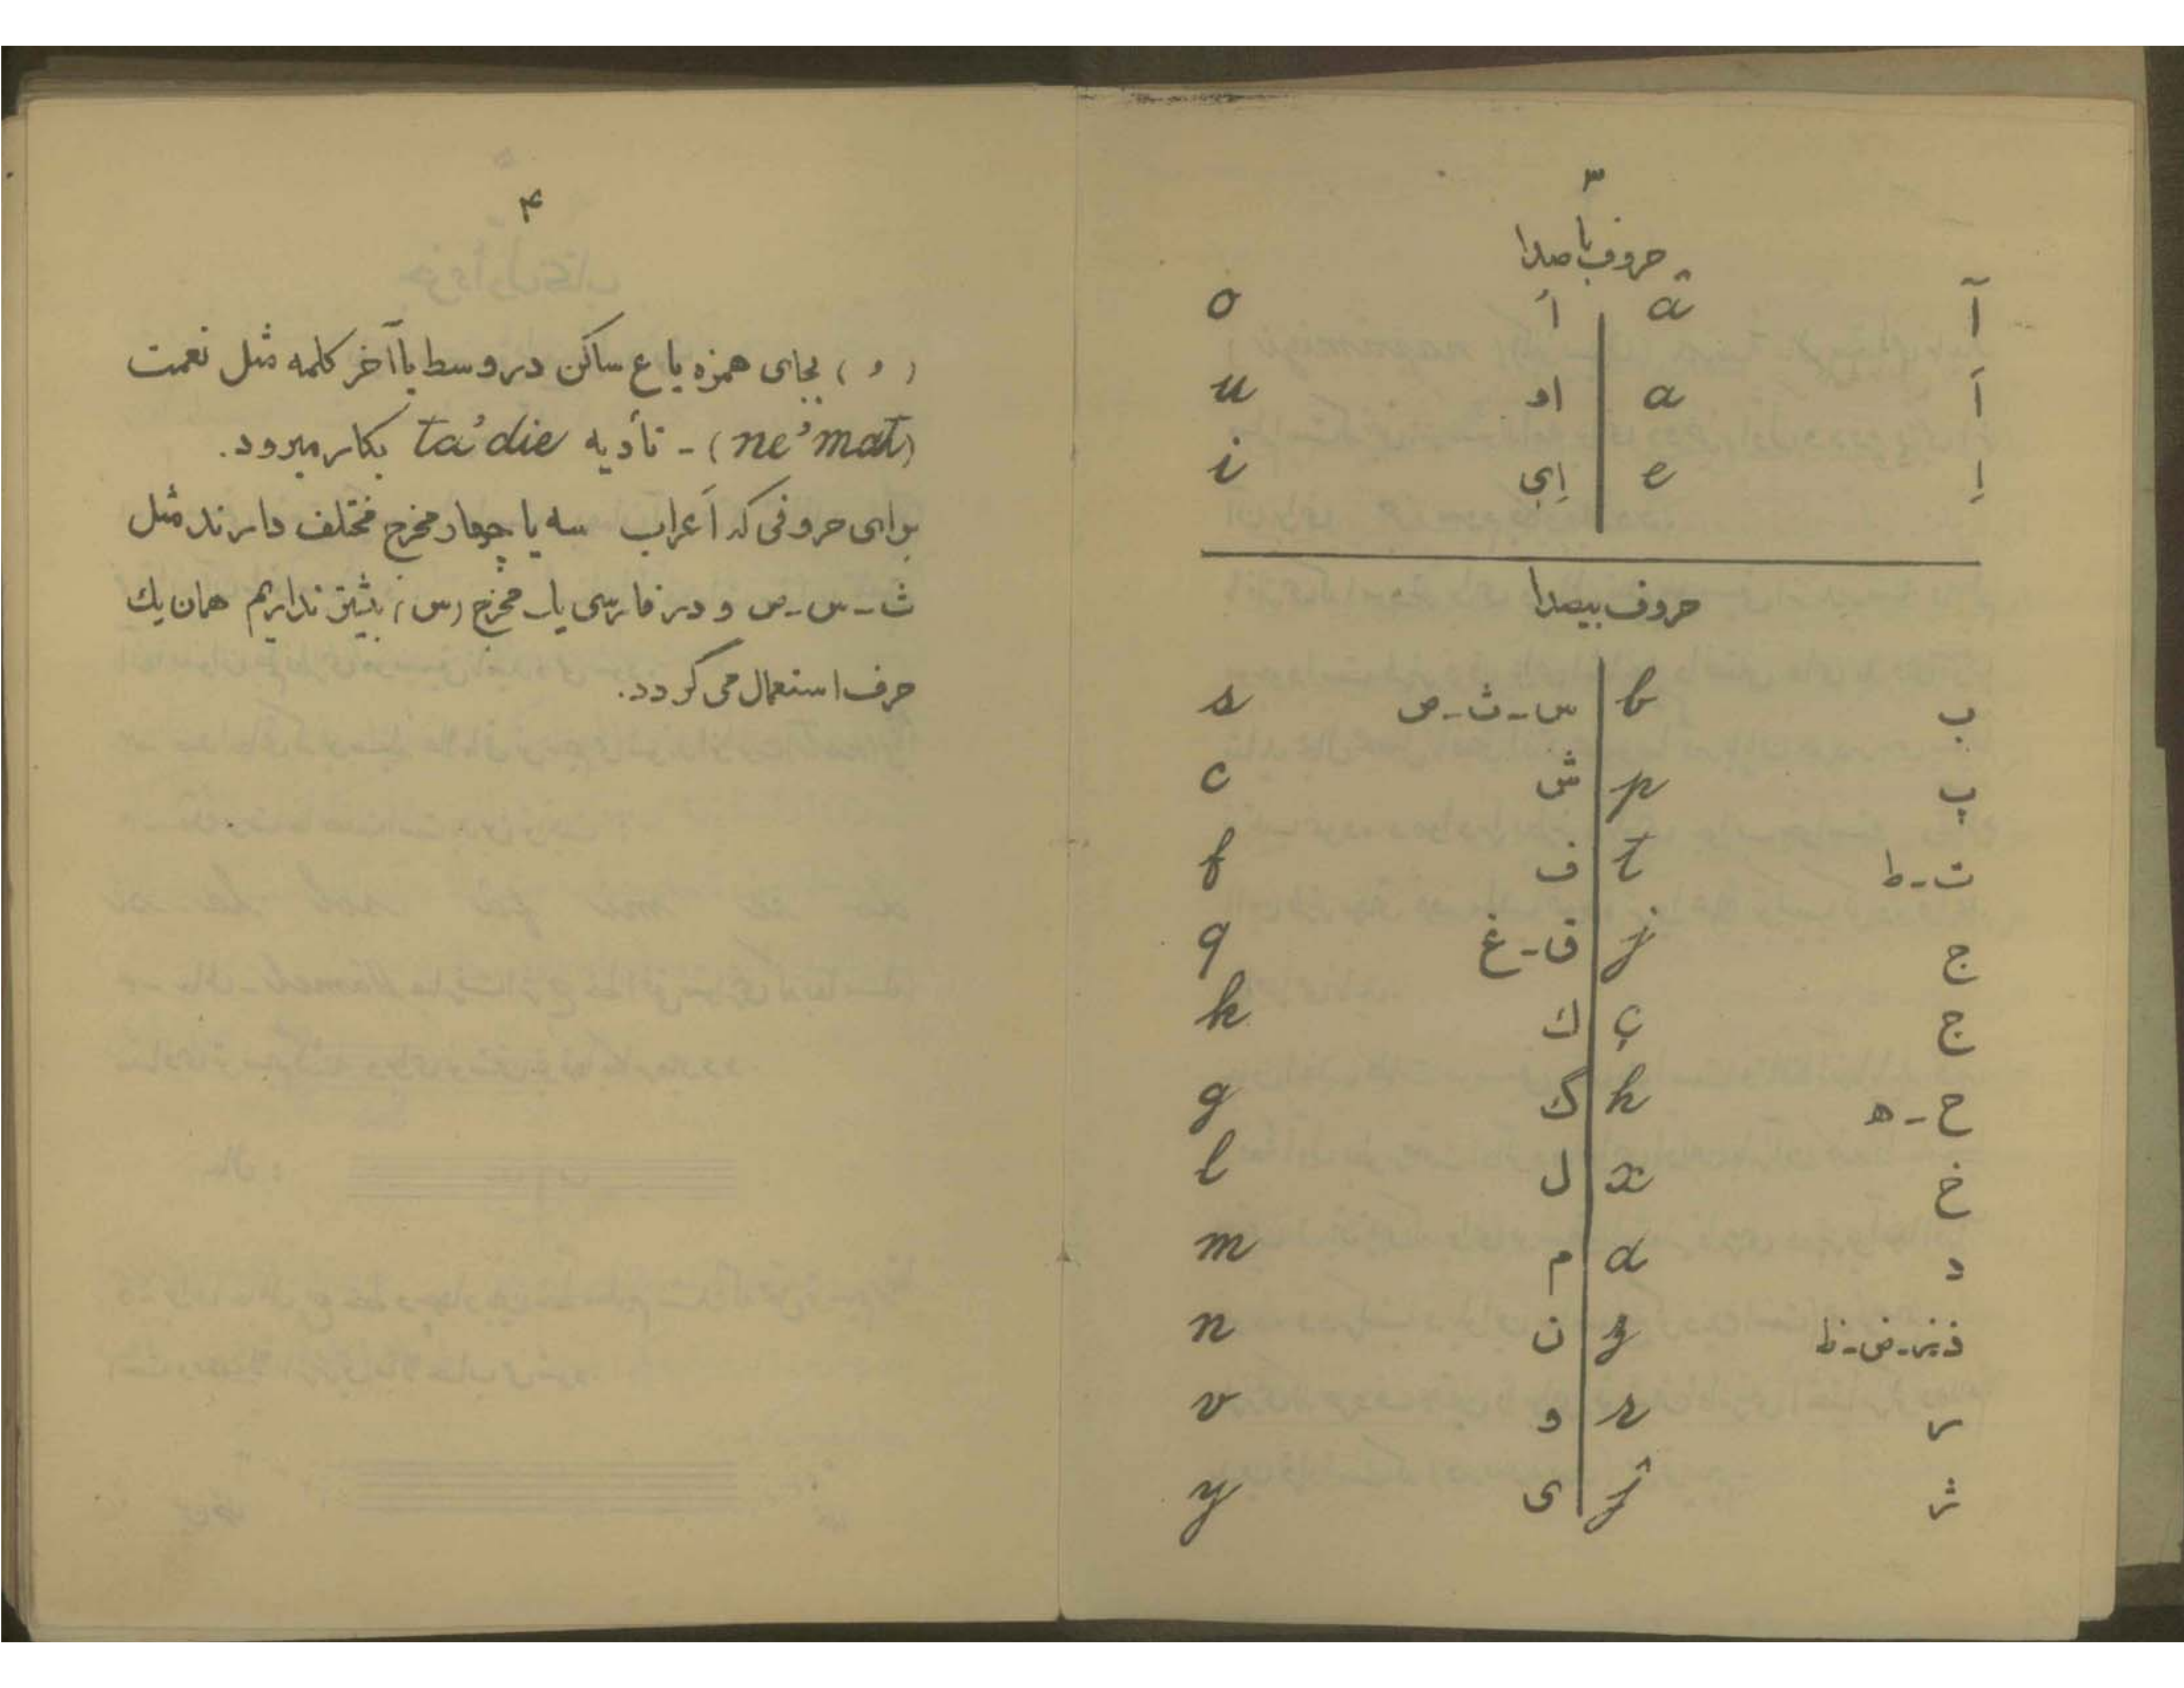 ۳
حروف با صدا
آ â اُ o
اَ a او u
اِ e اِی i
حروف بیصدا
ب b س-ث-ص s
پ p ش c
ت-ط t ف f
ج j ق-غ q
چ ç ك k
ح-ه h گ g
خ x ل l
د d م m
ذ-ز-ض-ظ z ن n
ر r و v
ژ ĵ ی y
۴
( ’ ) بجای همزه یا ع ساکن در وسط یا آخر کلمه مثل نعمت
(ne’mat) - تأدیه ta’die بکار میرود.
برای حروفی که اَعراب سه یا چهار مخرج مختلف دارند مثل
ث-س-ص و در فارسی یك مخرج (س) بیشتر نداریم همان یك
حرف استعمال می گردد.